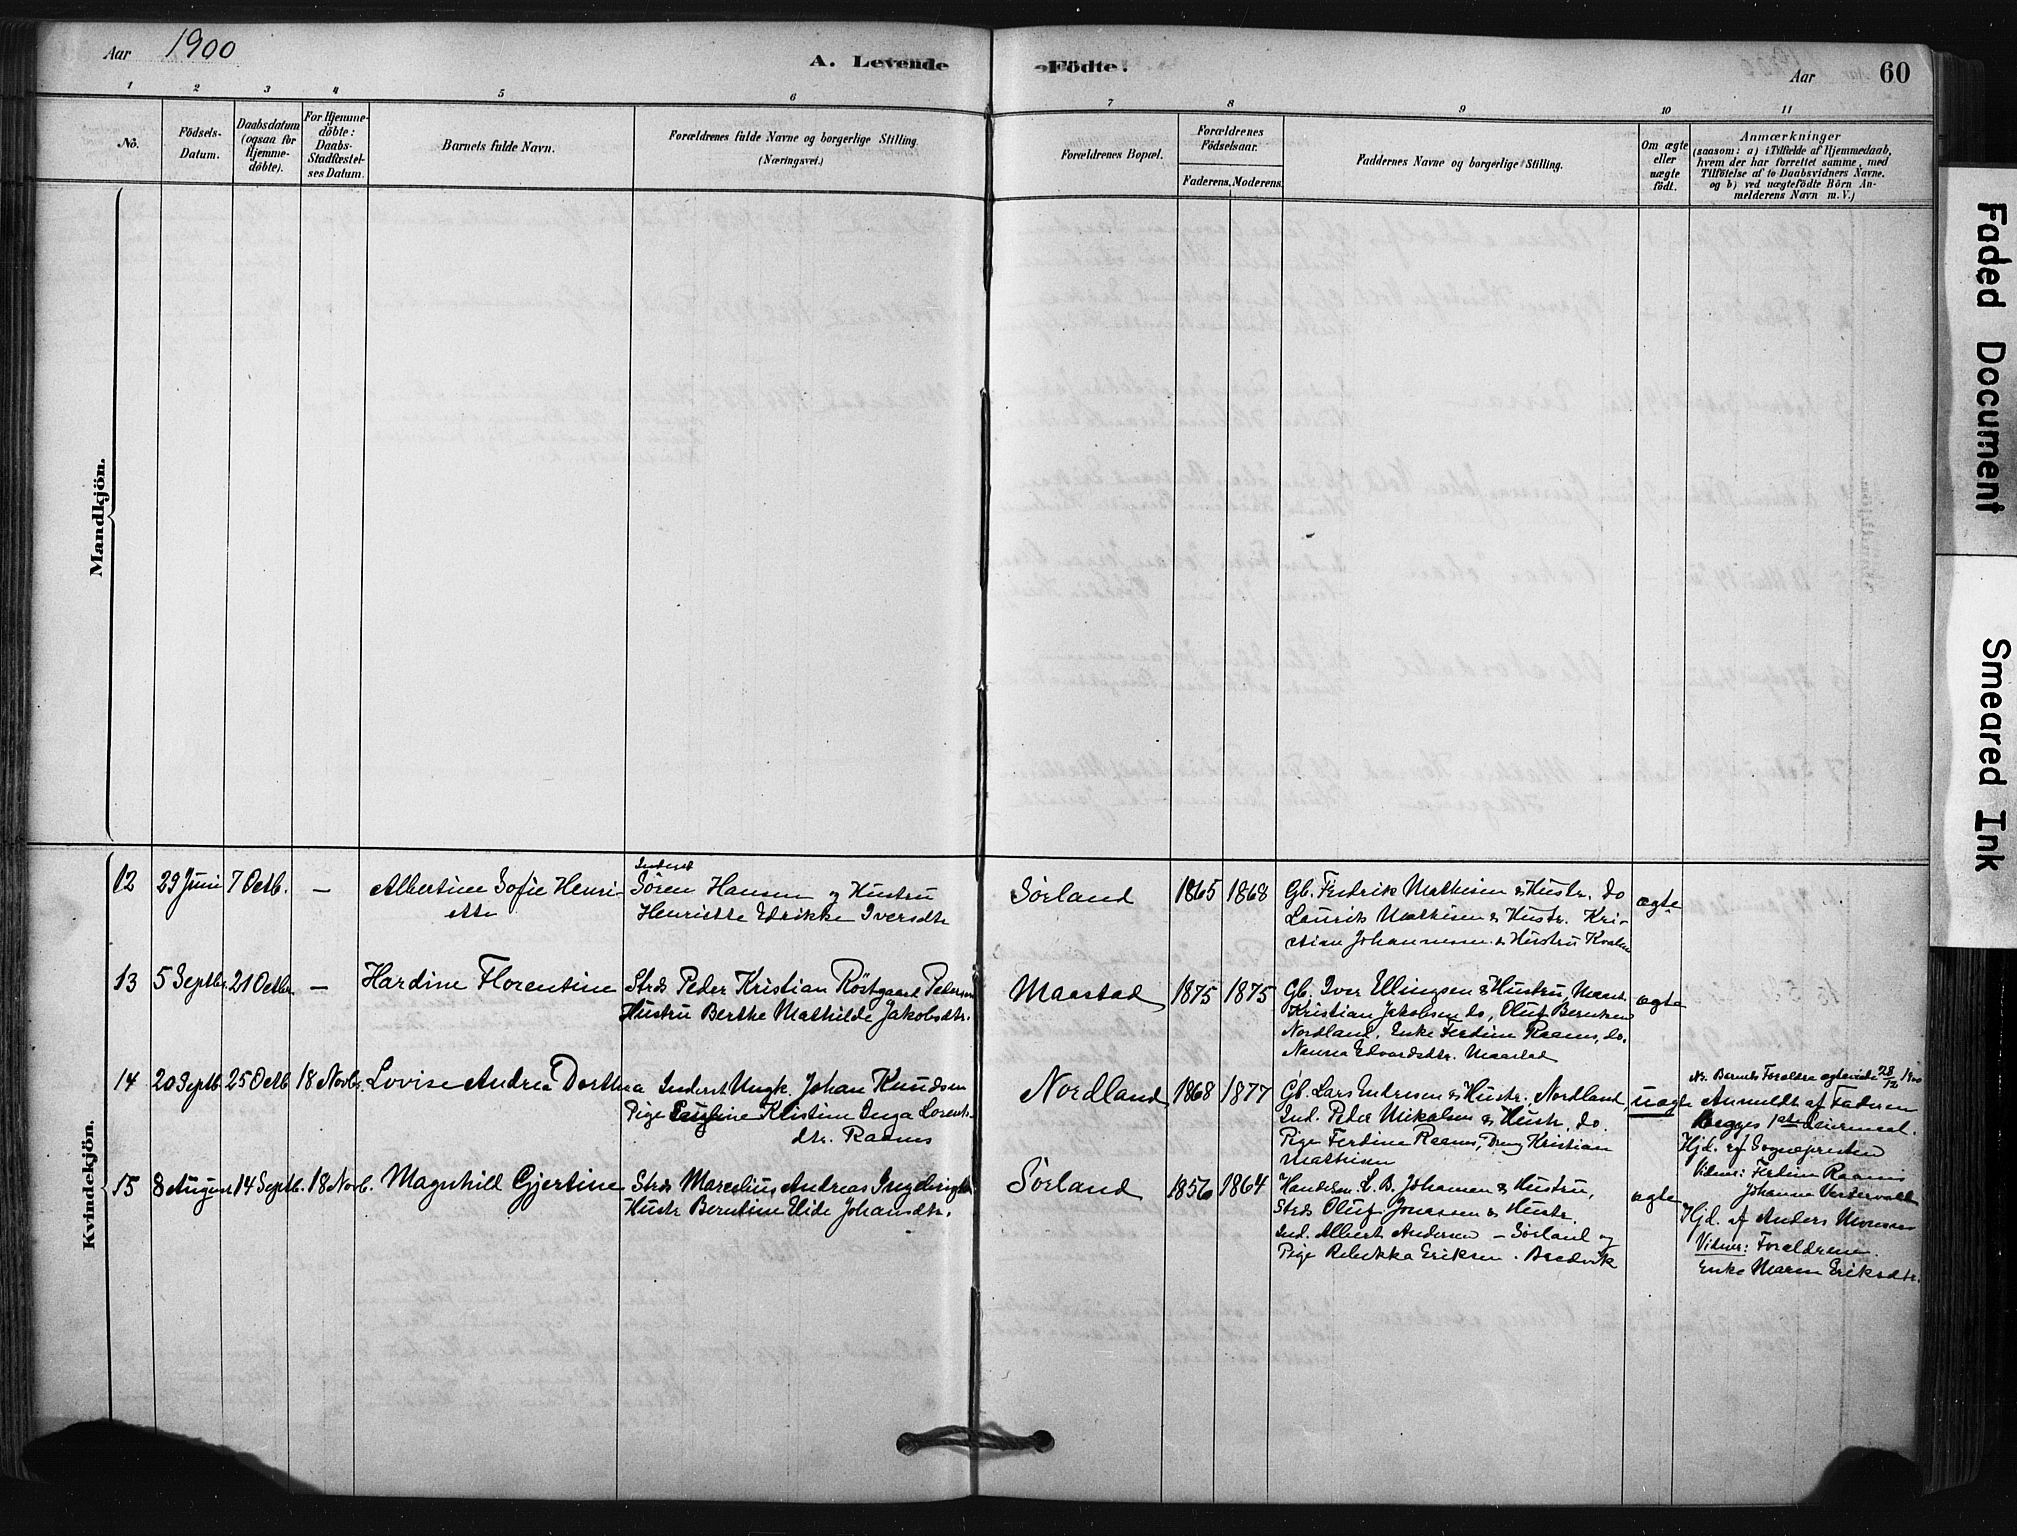 Aar 1900
A. Levende Födte.
Aar 60
1 2 3 4 5 6 7 8 9 10 11
No.
Födsels-Datum.
Daabsdatum (ogsaa for Hjemme-döbte).
For Hjemme-döbte: Daabs-Stadfæstel-ses Datum.
Barnets fulde Navn.
Forældrenes fulde Navne og borgerlige Stilling.
(Næringsvei.)
Forældrenes Bopæl.
Forældrenes Födselsaar.
Faderens. Moderens.
Faddernes Navne og borgerlige Stilling.
Om ægte eller uægte födt.
Anmærkninger
(saasom: a) i Tilfælde af Hjemmedaab,
hvem der har forrettet samme, med
Tilföielse af to Daabsvidners Navne.
og b) ved uægtefödte Börn An-
melderens Navn m. V.)
Mandkjön.
Kvindekjön.
12 29 Juni 7 Octb. — Albertine Sofie Henri-
ette
Inderst
Sören Hansen og Hustru
Henriette Edrikke Iversdtr
Sörland 1865 1868
Gb. Fredrik Mathisen & Hustr. do
Laurits Mathisen & Hustr. Kri-
stian Johannessen & Hustru Kvalnes
ægte
13 5 Septbr. 21 Octbr — Hardine Florentine
Strds Peder Kristian Röstgaard Pedersen
Hustru Berthe Mathilde Jakobsdtr.
Maastad 1875 1875
Gb. Iver Ellingsen & Hustru, Maast.
Kristian Jakobsen do, Oluf Berntsen
Nordland, Enke Ferdine Raanes, do.
Nanna Edvardsdtr. Maastad
ægte
14 20 Septb 25 Octb 18 Novbr. Lovise Andrea Dorthea
Inderst Ungk. Johan Knudsen
Pige Pauline Kristine Inga Lorents-
dtr. Raanes
Nordland 1868 1877
Gb. Lars Endresen & Hustr. Nordland,
Ind. Peder Mikalsen & Hustr, do.
Pige Ferdine Raanes, Dreng Kristian
Mathisen
uægte
Nb. Barnets Forældre ægteviede 28/12 1900
Anmeldt af Faderen
Begges 1ste Leiermaal.
Hjd. af Sognepresten
Vidner: Ferdine Raanes
Johanna
15 8 Augen 14 Septb. 18 Novb. Magnhild Gjertine
Strds Marcelius Andreas Ingebrigtsen
Hustr Berntine Elide Johansdtr.
Sörland 1856 1864
Handelsm. L. B. Johansen & Hustru,
Strds Oluf Jonassen & Hustr.
Ind. Albert Andersen — Sörland og
Pige Rebekka Eriksen. Bredvik
ægte
Hjd. af Anders Monsen
Vidner: Forældrene.
Enke Maren Eriksdtr.
Faded Document
Smeared Ink